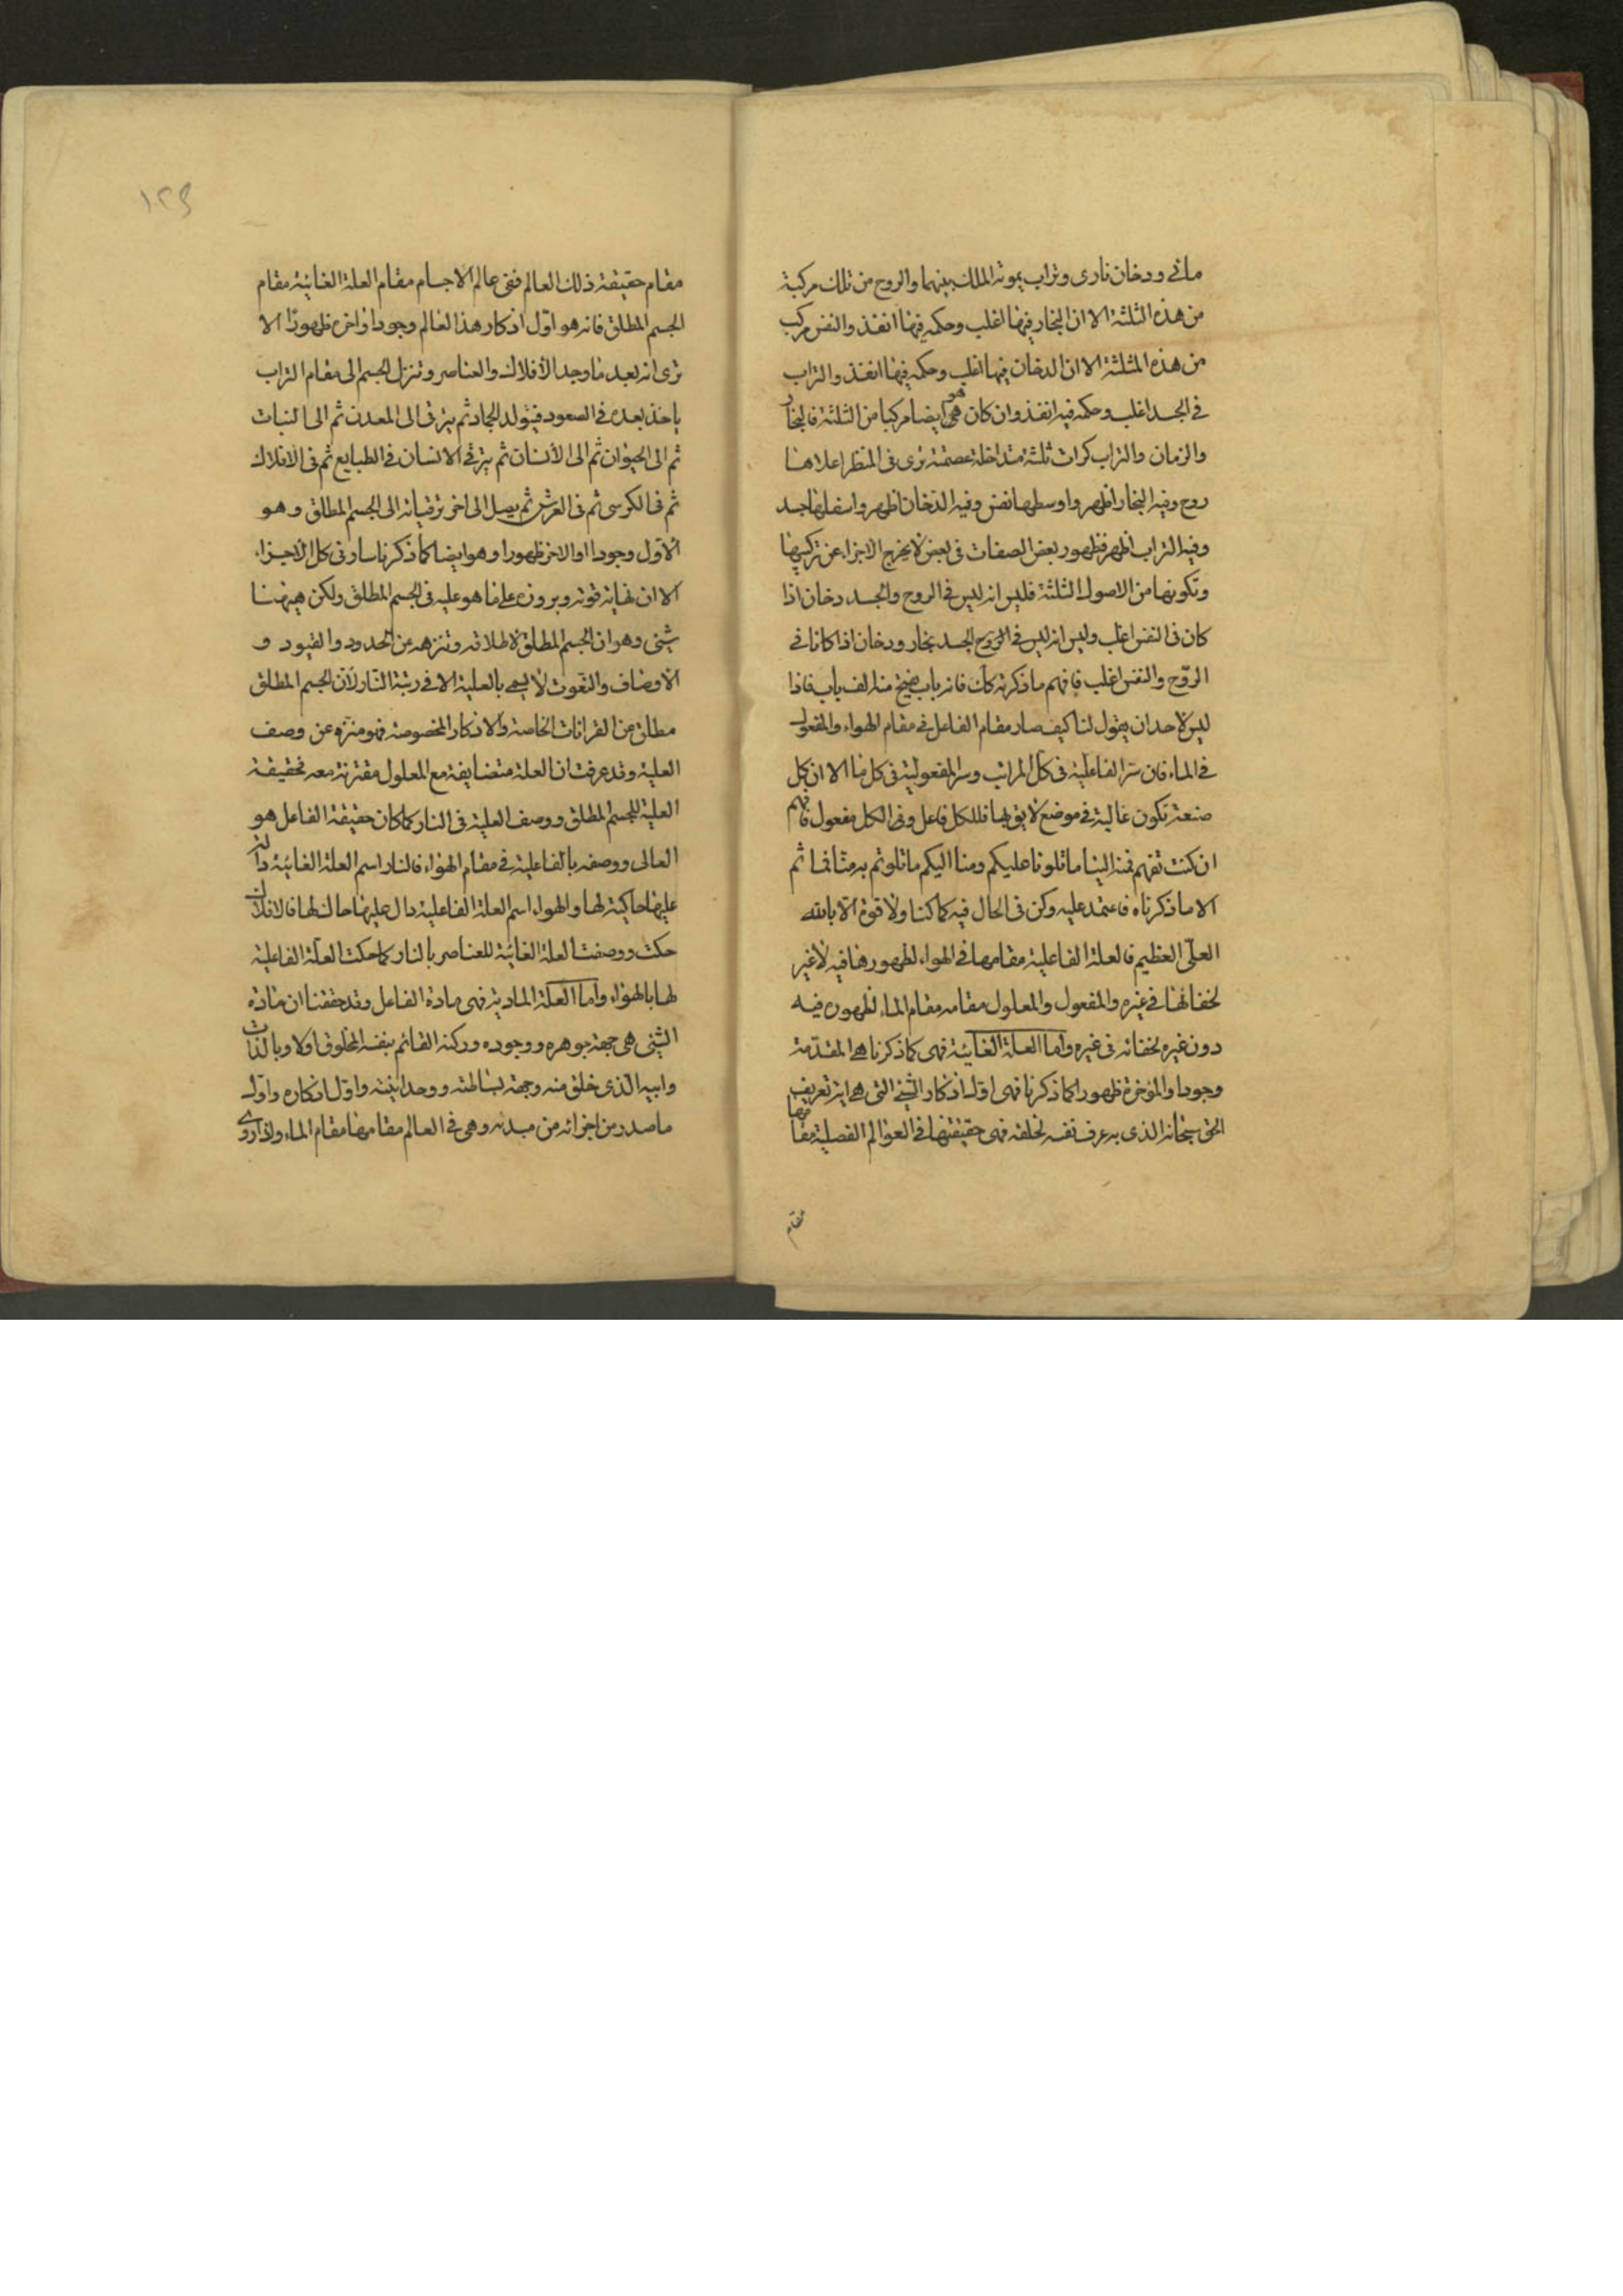 مائی ودخان ناری وتراب یموته الملك بینهما والروح من تلك مركبة
من هذه الثلثة الا ان البخار فیها اغلب وحكمه فیها انفذ والنفس مركب
من هذه المثلثة الا ان الدخان فیها اغلب وحكمه فیها انفذ والتراب
فی الجسد اغلب وحكمه فیه انفذ وان كان هو ایضا مركبا من الثلثة فالبخار
والتراب كرات ثلثة متداخلة تری فی المنظر اعلاها
روح وفیه البخار اظهر واوسطها نفس وفیه الدخان اظهر واسفلها جسد
وفیه التراب اظهر فظهور بعض الصفات فی بعض لا یخرج الاجزاء عن تركیبها
وتكونها من الاصول الثلثة فلیس انه لیس فی الروح والجسد دخان اذا
كان فی النفس اغلب ولیس انه لیس فی الجسد بخار ودخان اذا كانا فی
الروح والنفس اغلب فافهم ما ذكرته لك فانه باب یفتح منه الف باب فاذا
لیس لاحد ان یقول لنا كیف صار مقام الفاعل فی مقام الهواء والمفعول
فی الماء فان سر الفاعلیة فی كل المراتب وسر المفعولیة فی كل منا الا ان كل
صنعة تكون غالبة فی موضع لایق بها فللكل فاعل وفی الكل مفعول فافهم
ان كنت تفهم فمنه الینا ما تلونا علیكم ومنا الیكم ما تلوتم به منا ثم
الا ما ذكرناه فاعتمد علیه وكن فی الحال فیه كما كنا ولا قوة الا بالله
العلی العظیم فالعلة الفاعلیة مقامها فی الهواء لظهورها فیه لا غیر
لخفائها فی غیره والمفعول والمعلول مقامه مقام الماء لظهوره فیه
دون غیره لخفائه فی غیره واما العلة الغائیة فهی كما ذكرنا هی المقدمة
وجودا والمؤخرة ظهورا كما ذكرنا فهی اول اذكار الشیء التی هی ایة تعریف
الحق سبحانه الذی به عرف نفسه لخلقه فهی حقیقتها فی العوالم الفصلیة مقامها
مقام
١٢٩
مقام حقیقة ذلك العالم ففی عالم الاجسام مقام العلة الغائیة مقام
الجسم المطلق فانه هو اول اذكار هذا العالم وجودا واخره ظهورا الا
تری انه بعد ما وجد الأفلاك والعناصر وتنزل الجسم الی مقام التراب
یاخذ بعده فی الصعود فیتولد الجماد ثم یترقی الی المعدن ثم الی النبات
ثم الی الحیوان ثم الی الأنسان ثم یترقی الانسان فی الطبایع ثم فی الافلاك
ثم فی الكرسی ثم فی العرش ثم یصل الی اخر ترقیاته الی الجسم المطلق وهو
الاول وجودا والاخر ظهورا وهو ایضا كما ذكرنا سار فی كل الاجزاء
الا ان نهایة قوته وبروزه علی ما هو علیه فی الجسم المطلق ولكن هیهنا
شیئ وهو ان الجسم المطلق لاطلاقه وتنزهه عن الحدود والقیود و
الأوصاف والنعوت لا یسمی بالعلیة الا فی رتبة النار لأن الجسم المطلق
مطلق عن القرانات الخاصة والاذكار المخصوصة فهو منزه عن وصف
العلیة وقد عرفت ان العلة متضایفة مع المعلول مقترنة معه فحقیقة
العلیة للجسم المطلق ووصف العلیة فی النار كما كان حقیقة الفاعل هو
العالی ووصفه بالفاعلیة فی مقام الهواء فالنار اسم العلة الغائیة دالة
علیها حاكیة لها والهواء اسم العلة الفاعلیة دال علیها حاك لها فالافلاك
حكت ووصفت العلة الغائیة للعناصر بالنار كما حكت العلة الفاعلیة
لها بالهواء واما العلة المادیة فهی مادة الفاعل وقد حققنا ان مادة
الشیئ هی جهة جوهره ووجوده وركنه القائم بنفسه المخلوق اولا وبالذات
وابیه الذی خلق منه وجهة بساطته ووحدانیته واول اذكاره واول
ما صدر من اجزائه من مبدئه وهی فی العالم مقامها مقام الماء ولذا روی